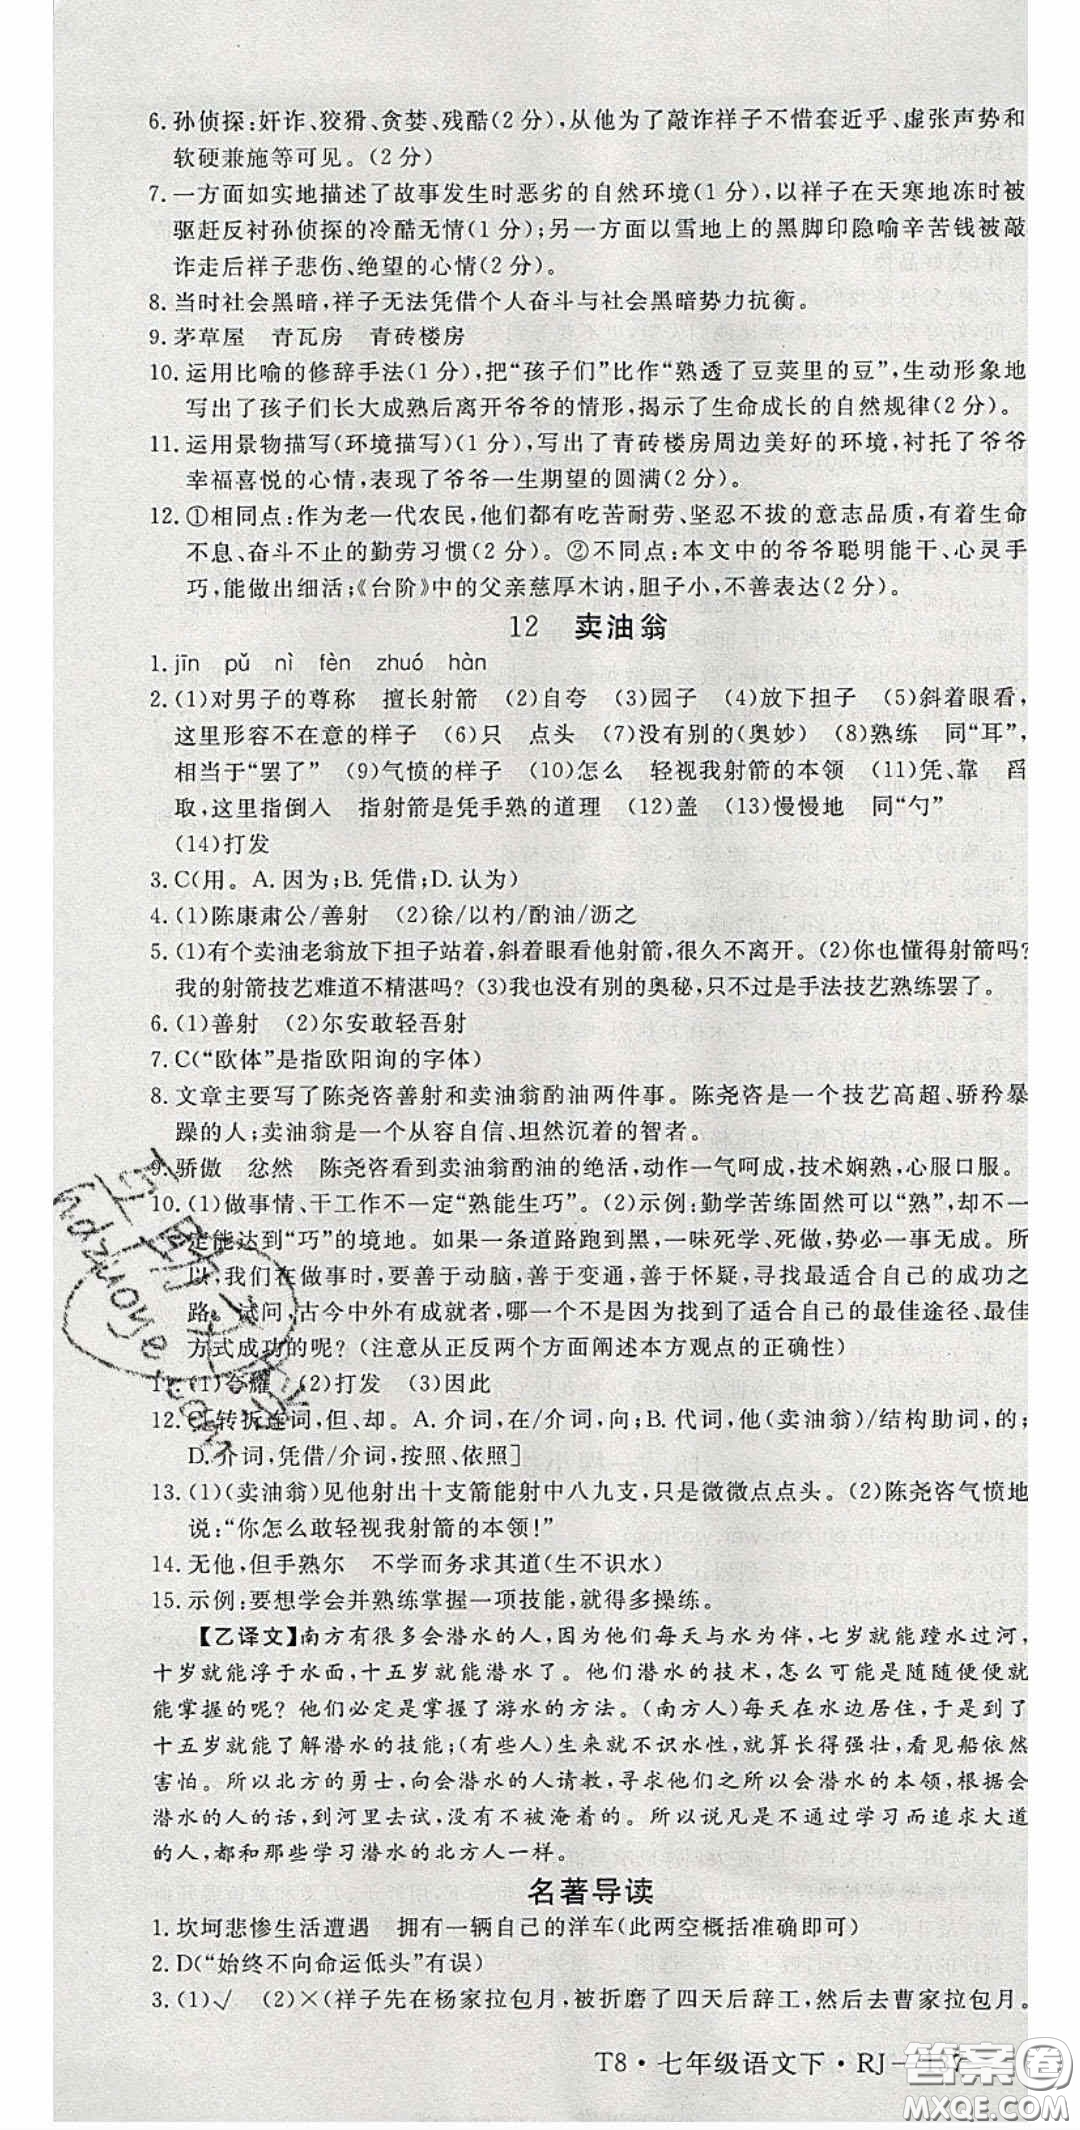 6. 孙侦探:奸诈、狡猾、贪婪、残酷(2分),从他为了敲诈祥子不惜套近乎、虚张声势和
软硬兼施等可见。(2分)
7. 一方面如实地描述了故事发生时恶劣的自然环境(1分),以祥子在天寒地冻时被
驱赶反衬孙侦探的冷酷无情(1分);另一方面以雪地上的黑脚印隐喻辛苦钱被敲
诈走后祥子悲伤、绝望的心情(2分)。
8. 当时社会黑暗,祥子无法凭借个人奋斗与社会黑暗势力抗衡。
9. 茅草屋 青瓦房 青砖楼房
10. 运用比喻的修辞手法(1分),把“孩子们”比作“熟透了豆荚里的豆”,生动形象地
写出了孩子们长大成熟后离开爷爷的情形,揭示了生命成长的自然规律(2分)。
11. 运用景物描写(环境描写)(1分),写出了青砖楼房周边美好的环境,衬托了爷爷
幸福喜悦的心情,表现了爷爷一生期望的圆满(2分)。
12. ①相同点:作为老一代农民,他们都有吃苦耐劳、坚忍不拔的意志品质,有着生命
不息、奋斗不止的勤劳习惯(2分)。②不同点:本文中的爷爷聪明能干、心灵手
巧,能做出细活;《台阶》中的父亲慈厚木讷,胆子小,不善表达(2分)。
12 卖油翁
1. jīn pǔ nì fèn zhuó hàn
2. (1)对男子的尊称 擅长射箭 (2)自夸 (3)园子 (4)放下担子 (5)斜着眼看,
这里形容不在意的样子 (6)只 点头 (7)没有别的(奥妙) (8)熟练 同“耳”,
相当于“罢了” (9)气愤的样子 (10)怎么 轻视我射箭的本领 (11)凭、靠 舀
取,这里指倒入 指射箭是凭手熟的道理 (12)盖 (13)慢慢地 同“勺”
(14)打发
3. C(用。A. 因为;B. 凭借;D. 认为)
4. (1)陈康肃公/善射 (2)徐/以杓/酌油/沥之
5. (1)有个卖油老翁放下担子站着,斜着眼看他射箭,很久不离开。(2)你也懂得射箭吗?
我的射箭技艺难道不精湛吗?(3)我也没有别的奥秘,只不过是手法技艺熟练罢了。
6. (1)善射 (2)尔安敢轻吾射
7. C(“欧体”是指欧阳询的字体)
8. 文章主要写了陈尧咨善射和卖油翁酌油两件事。陈尧咨是一个技艺高超、骄矜暴
躁的人;卖油翁是一个从容自信、坦然沉着的智者。
9. 骄傲 忿然 陈尧咨看到卖油翁酌油的绝活,动作一气呵成,技术娴熟,心服口服。
10. (1)做事情、干工作不一定“熟能生巧”。(2)示例:勤学苦练固然可以“熟”,却不一
定能达到“巧”的境地。如果一条道路跑到黑,一味死学、死做,势必一事无成。所
以,我们在做事时,要善于动脑,善于变通,善于怀疑,寻找最适合自己的成功之
路。试问,古今中外有成就者,哪一个不是因为找到了适合自己的最佳途径、最佳
方式成功的呢?(注意从正反两个方面阐述本方观点的正确性)
11. (1)夸耀 (2)打发 (3)因此
12. C[转折连词,但、却。A. 介词,在/介词,向;B. 代词,他(卖油翁)/结构助词,的;
D. 介词,凭借/介词,按照、依照]
13. (1)(卖油翁)见他射出十支箭能射中八九支,只是微微点点头。(2)陈尧咨气愤地
说:“你怎么敢轻视我射箭的本领!”
14. 无他,但手熟尔 不学而务求其道(生不识水)
15. 示例:要想学会并熟练掌握一项技能,就得多操练。
【乙译文】南方有很多会潜水的人,因为他们每天与水为伴,七岁就能蹚水过河,
十岁就能浮于水面,十五岁就能潜水了。他们潜水的技术,怎么可能是随随便便就
能掌握的呢?他们必定是掌握了游水的方法。(南方人)每天在水边居住,于是到了
十五岁就能了解潜水的技能;(有些人)生来就不识水性,就算长得强壮,看见船依然
害怕。所以北方的勇士,向会潜水的人请教,寻求他们之所以会潜水的本领,根据会
潜水的人的话,到河里去试,没有不被淹着的。所以说凡是不通过学习而追求大道
的人,都和那些学习潜水的北方人一样。
名著导读
1. 坎坷悲惨生活遭遇 拥有一辆自己的洋车(此两空概括准确即可)
2. D(“始终不向命运低头”有误)
3. (1)√ (2)×(祥子先在杨家拉包月,被折磨了四天后辞工,然后去曹家拉包月。
T8·七年级语文下·RJ
答案圈
MXQE.COM